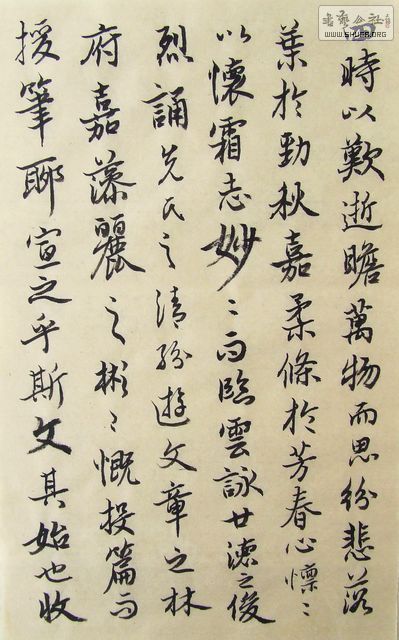 時以歎逝瞻萬物而思紛悲落
葉於勁秋嘉柔條於芳春心懍〻
以懷霜志妙〻而臨雲詠世德之俊
烈誦先民之清紛遊文章之林
府嘉藻麗之彬〻慨投篇而
援筆聊宣之乎斯文其始也收
书艺公社
WWW.SHUFA.ORG